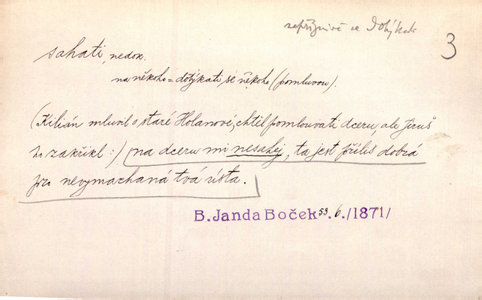 nepříznivě se dotýkati
3
sahati nedok.
na někoho = dotýkati se někoho (pomluvou).
(Kilián mluvil o staré Holanové, chtěl pomlouvati dceru, ale Jeruš
ho zakřikl:) na dceru mi nesahej, ta jest příliš dobrá
pro nevymáchaná tvá ústa.
B. Janda Boček 53. 6. /1871/